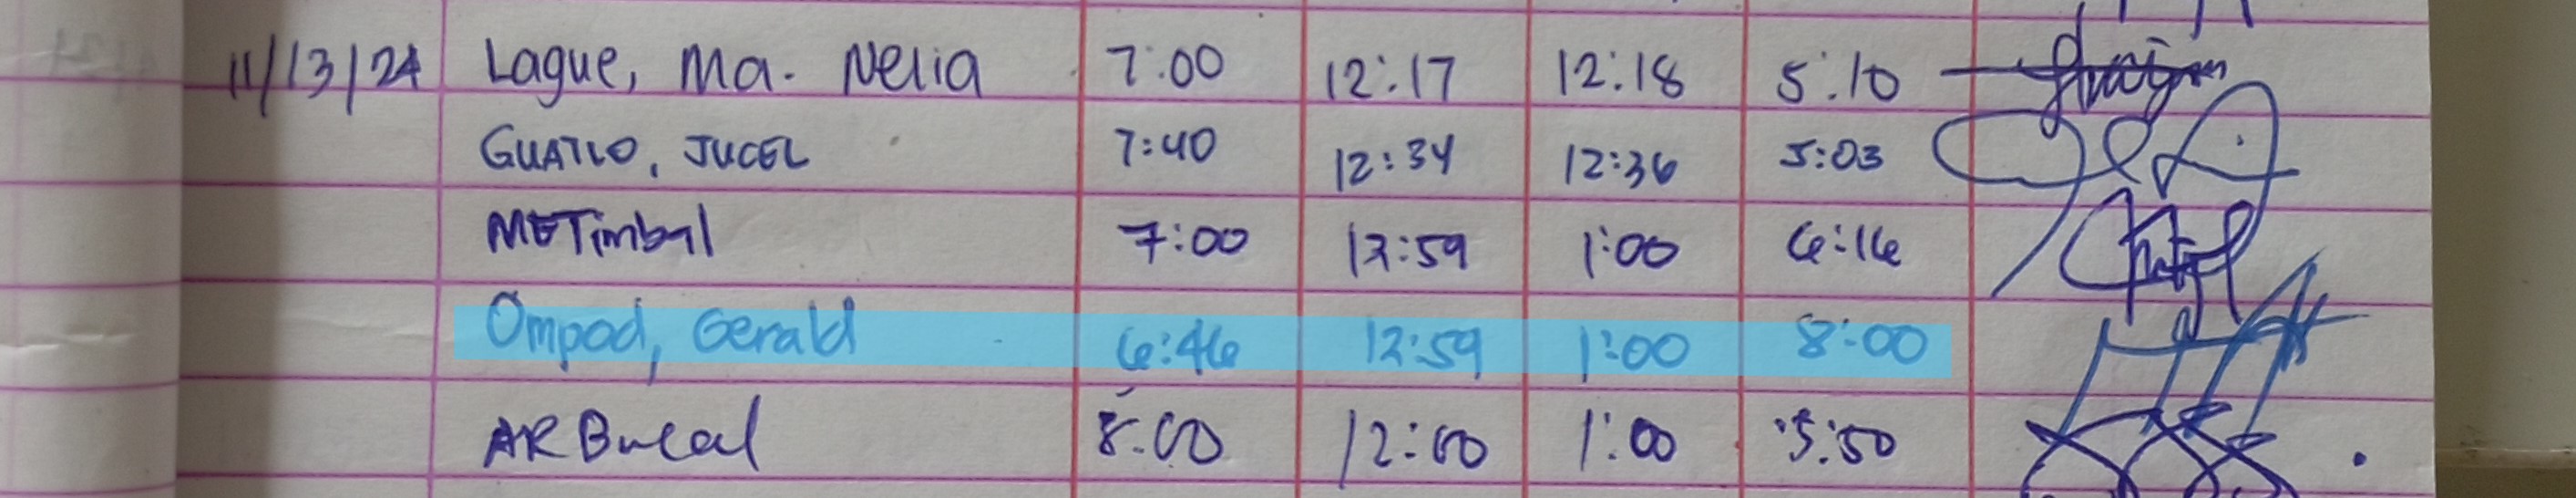 11/13/24 Lague, Ma. Nelia 7:00 12:17 12:18 5:10
GUATLO, JUCEL 7:40 12:34 12:36 5:03
METimbal 7:00 12:59 1:00 6:16
Ompod, Gerald 6:46 12:59 1:00 8:00
AR Bucal 8:00 12:00 1:00 5:50